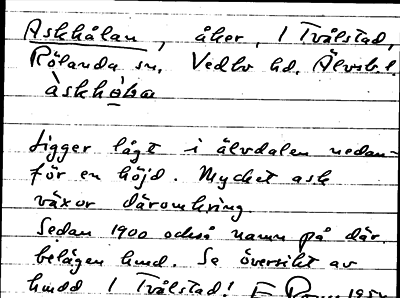 Askhålan, åker, 1 Tvålstad,
Rölanda sn. Vedbo hd. Älvsb.l.
àskhòba
Ligger lågt i älvdalen nedan-
för en höjd. Mycket ask
växer däromkring.
Sedan 1900 också namn på där
belägen hmd. Se översikt av
hmdd 1 Tvålstad!